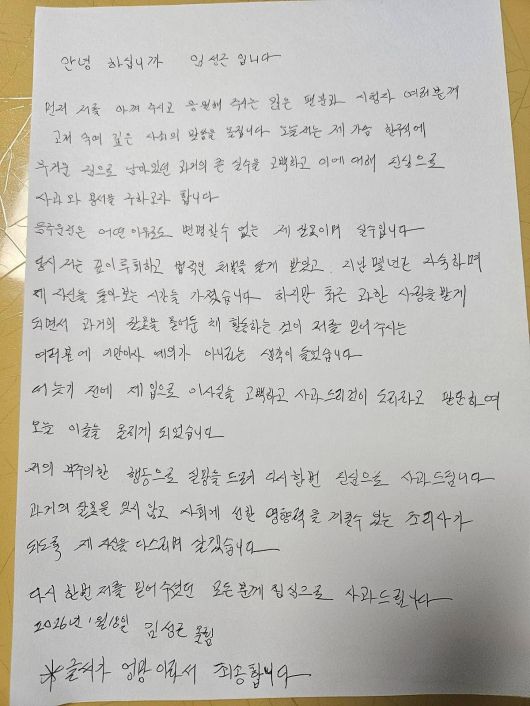 안녕 하십니까 임성근 입니다
먼저 저를 아껴 주시고 응원해 주시는 많은 팬분과 시청자 여러분께
고개 숙여 깊은 사죄의 말씀을 올립니다 오늘 저는 제 가슴 한구석에
무거운 짐으로 남아있던 과거의 큰 실수를 고백하고 이에 대해 진심으로
사과와 용서를 구하고자 합니다
음주운전은 어떤 이유로도 변명할수 없는 제 잘못이며 실수입니다
당시 저는 깊이 후회하고 법적인 처벌을 달게 받았고, 지난 몇년간 자숙하며
제 자신을 돌아보는 시간을 가졌습니다 하지만 최근 과한 사랑을 받게
되면서 과거의 잘못을 묻어둔 채 활동하는 것이 저를 믿어 주시는
여러분에 기만이자 예의가 아니라는 생각이 들었습니다
더 늦기 전에 제 입으로 이사실을 고백하고 사과드리는것이 도리라고 판단하여
오늘 이글을 올리게 되었습니다
저의 부주의한 행동으로 실망을 드려 다시한번 진심으로 사과드립니다
과거의 잘못을 잊지 않고 사회에 선한 영향력을 끼칠수 있는 조리사가
되도록 제 자신을 다스리며 살겠습니다
다시 한번 저를 믿어주셨던 모든분께 진심으로 사과드립니다
2026년 1월 18일 임성근 올림
*글씨가 엉망이라서 죄송합니다